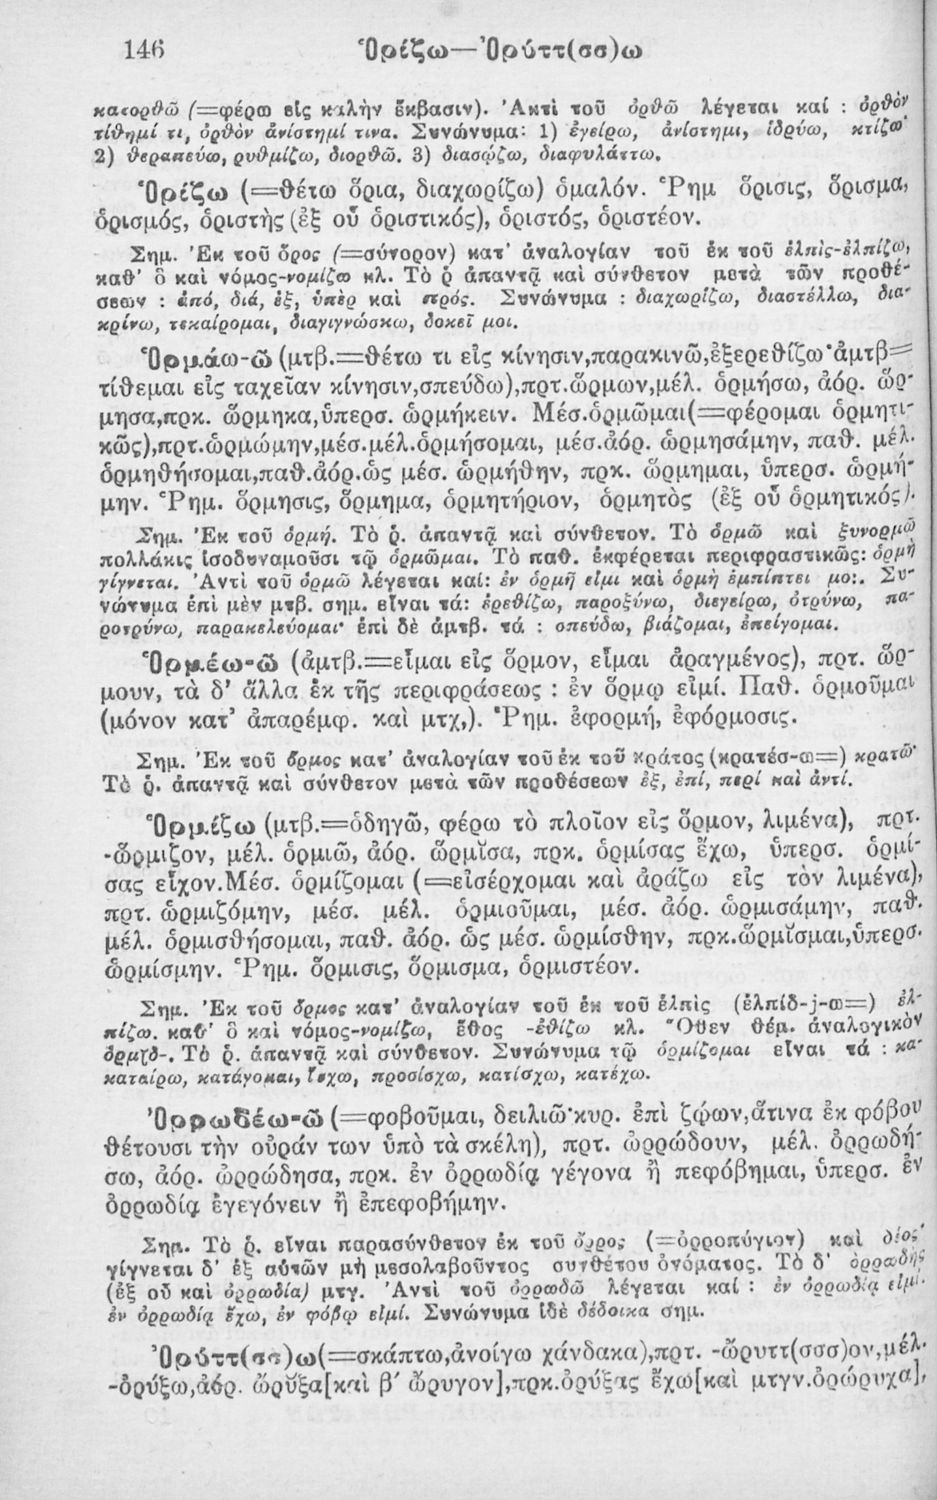 146 Ὁρίζω—Ὀρύττ(σσ)ω
κατορθῶ (=φέρω εἰς καλὴν ἔκβασιν). Ἀντὶ τοῦ ὀρθῶ λέγεται καί : ὀρθὸν
τίθημί τι, ὀρθὸν ἀνίστημί τινα. Συνώνυμα: 1) ἐγείρω, ἀνίστημι, ἱδρύω, κτίζω
2) θεραπεύω, ρυθμίζω, διορθῶ. 3) διασῴζω, διαφυλάττω.
Ὁρίζω (=θέτω ὅρια, διαχωρίζω) ὁμαλόν. Ῥημ ὅρισις, ὅρισμα,
ὁρισμός, ὁριστὴς (ἐξ οὗ ὁριστικός), ὁριστός, ὁριστέον.
Σημ. Ἐκ τοῦ ὅρος (=σύνορον) κατ' ἀναλογίαν τοῦ ἐκ τοῦ ἐλπὶς-ἐλπίζω,
καθ' ὃ καὶ νόμος-νομίζω κλ. Τὸ ῥ ἀπαντᾷ καὶ σύνθετον μετὰ τῶν προθέ-
σεων : ἀπό, διά, ἐξ, ὑπὲρ καὶ πρός. Συνώνυμα : διαχωρίζω, διαστέλλω, δια-
κρίνω, τεκαίρομαι, διαγιγνώσκω, δοκεῖ μοι.
Ὁρμάω-ῶ (μτβ.=θέτω τι εἰς κίνησιν,παρακινῶ,ἐξερεθίζω·ἀμτβ=
τίθεμαι εἰς ταχεῖαν κίνησιν,σπεύδω),πρτ.ὥρμων,μέλ. ὁρμήσω, ἀόρ. ὥρ-
μησα,πρκ. ὥρμηκα,ὑπερσ. ὡρμήκειν. Μέσ.ὁρμῶμαι(=φέρομαι ὁρμητι-
κῶς),πρτ.ὡρμώμην,μέσ.μέλ.ὁρμήσομαι, μέσ.ἀόρ. ὡρμησάμην, παθ. μέλ.
ὁρμηθήσομαι,παθ.ἀόρ.ὡς μέσ. ὡρμήθην, πρκ. ὥρμημαι, ὑπερσ. ὡρμή-
μην. Ῥημ. ὅρμησις, ὅρμημα, ὁρμητήριον, ὁρμητὸς (ἐξ οὗ ὁρμητικός).
Σημ. Ἐκ τοῦ ὁρμή. Τὸ ῥ. ἀπαντᾷ καὶ σύνθετον. Τὸ ὁρμῶ καὶ ξυνορμῶ
πολλάκις ἰσοδυναμοῦσι τῷ ὁρμῶμαι. Τὸ παθ. ἐκφέρεται περιφραστικῶς: ὁρμὴ
γίγνεται. Ἀντὶ τοῦ ὁρμῶ λέγεται καί: ἐν ὁρμῇ εἰμι καὶ ὁρμὴ ἐμπίπτει μοι. Συ-
νώνυμα ἐπὶ μὲν μτβ. σημ. εἶναι τά: ἐρεθίζω, παροξύνω, διεγείρω, ὀτρύνω, πα-
ροτρύνω, παρακελεύομαι· ἐπὶ δὲ ἀμτβ. τά : σπεύδω, βιάζομαι, ἐπείγομαι.
Ὁρμέω-ῶ (ἀμτβ.=εἶμαι εἰς ὅρμον, εἶμαι ἀραγμένος), πρτ. ὥρ-
μουν, τὰ δ' ἄλλα ἐκ τῆς περιφράσεως : ἐν ὅρμῳ εἰμί. Παθ. ὁρμοῦμαι
(μόνον κατ' ἀπαρέμφ. καὶ μτχ,). Ῥημ. ἐφορμή, ἐφόρμοσις.
Σημ. Ἐκ τοῦ ὅρμος κατ' ἀναλογίαν τοῦ ἐκ τοῦ κράτος (κρατέσ-ω=) κρατῶ
Τὸ ῥ. ἀπαντᾷ καὶ σύνθετον μετὰ τῶν προθέσεων ἐξ, ἐπί, περὶ καὶ ἀντί.
Ὁρμίζω (μτβ.=ὁδηγῶ, φέρω τὸ πλοῖον εἰς ὅρμον, λιμένα), πρτ.
-ὥρμιζον, μέλ. ὁρμιῶ, ἀόρ. ὥρμισα, πρκ. ὁρμίσας ἔχω, ὑπερσ. ὁρμί-
σας εἶχον.Μέσ. ὁρμίζομαι (=εἰσέρχομαι καὶ ἀράζω εἰς τὸν λιμένα),
πρτ. ὡρμιζόμην, μέσ. μέλ. ὁρμιοῦμαι, μέσ. ἀόρ. ὡρμισάμην, παθ.
μέλ. ὁρμισθήσομαι, παθ. ἀόρ. ὡς μέσ. ὡρμίσθην, πρκ.ὥρμισμαι,ὑπερσ.
ὡρμίσμην. Ῥημ. ὅρμισις, ὅρμισμα, ὁρμιστέον.
Σημ. Ἐκ τοῦ ὅρμος κατ' ἀναλογίαν τοῦ ἐκ τοῦ ἐλπὶς (ἐλπίδ-j-ω=) ἐλ-
πίζω. καθ' ὃ καὶ νόμος-νομίζω, ἔθος -ἐθίζω κλ. Ὅθεν θέμ. ἀναλογικὸν
ὁρμῐδ-. Τὸ ῥ. ἀπαντᾷ καὶ σύνθετον. Συνώνυμα τῷ ὁρμίζομαι εἶναι τά : κα-
καταίρω, κατάγομαι, ἴσχω, προσίσχω, κατίσχω, κατέχω.
Ὀρρωδέω-ῶ (=φοβοῦμαι, δειλιῶ·κυρ. ἐπὶ ζῴων,ἅτινα ἐκ φόβου
θέτουσι τὴν οὐράν των ὑπὸ τὰ σκέλη), πρτ. ὠρρώδουν, μέλ. ὀρρωδή-
σω, ἀόρ. ὠρρώδησα, πρκ. ἐν ὀρρωδίᾳ γέγονα ἢ πεφόβημαι, ὑπερσ. ἐν
ὀρρωδίᾳ ἐγεγόνειν ἢ ἐπεφοβήμην.
Σημ. Τὸ ῥ. εἶναι παρασύνθετον ἐκ τοῦ ὄρρος (=ὀρροπύγιον) καὶ δέος
γίγνεται δ' ἐξ αὐτῶν μὴ μεσολαβοῦντος συνθέτου ὀνόματος. Τὸ δ' ὀρρωδὴς
(ἐξ οὗ καὶ ὀρρωδία) μτγ. Ἀντὶ τοῦ ὀρρωδῶ λέγεται καί : ἐν ὀρρωδίᾳ εἰμι.
ἐν ὀρρωδίᾳ ἔχω, ἐν φόβῳ εἰμί. Συνώνυμα ἰδὲ δέδοικα σημ.
Ὀρύττ(σσ)ω(=σκάπτω,ἀνοίγω χάνδακα),πρτ. -ὤρυττ(σσσ)ον,μέλ.
-ὀρύξω,ἀόρ. ὤρυξα[καὶ β' ὤρυγον],πρκ.ὀρύξας ἔχω[καὶ μτγν.ὀρώρυχα],